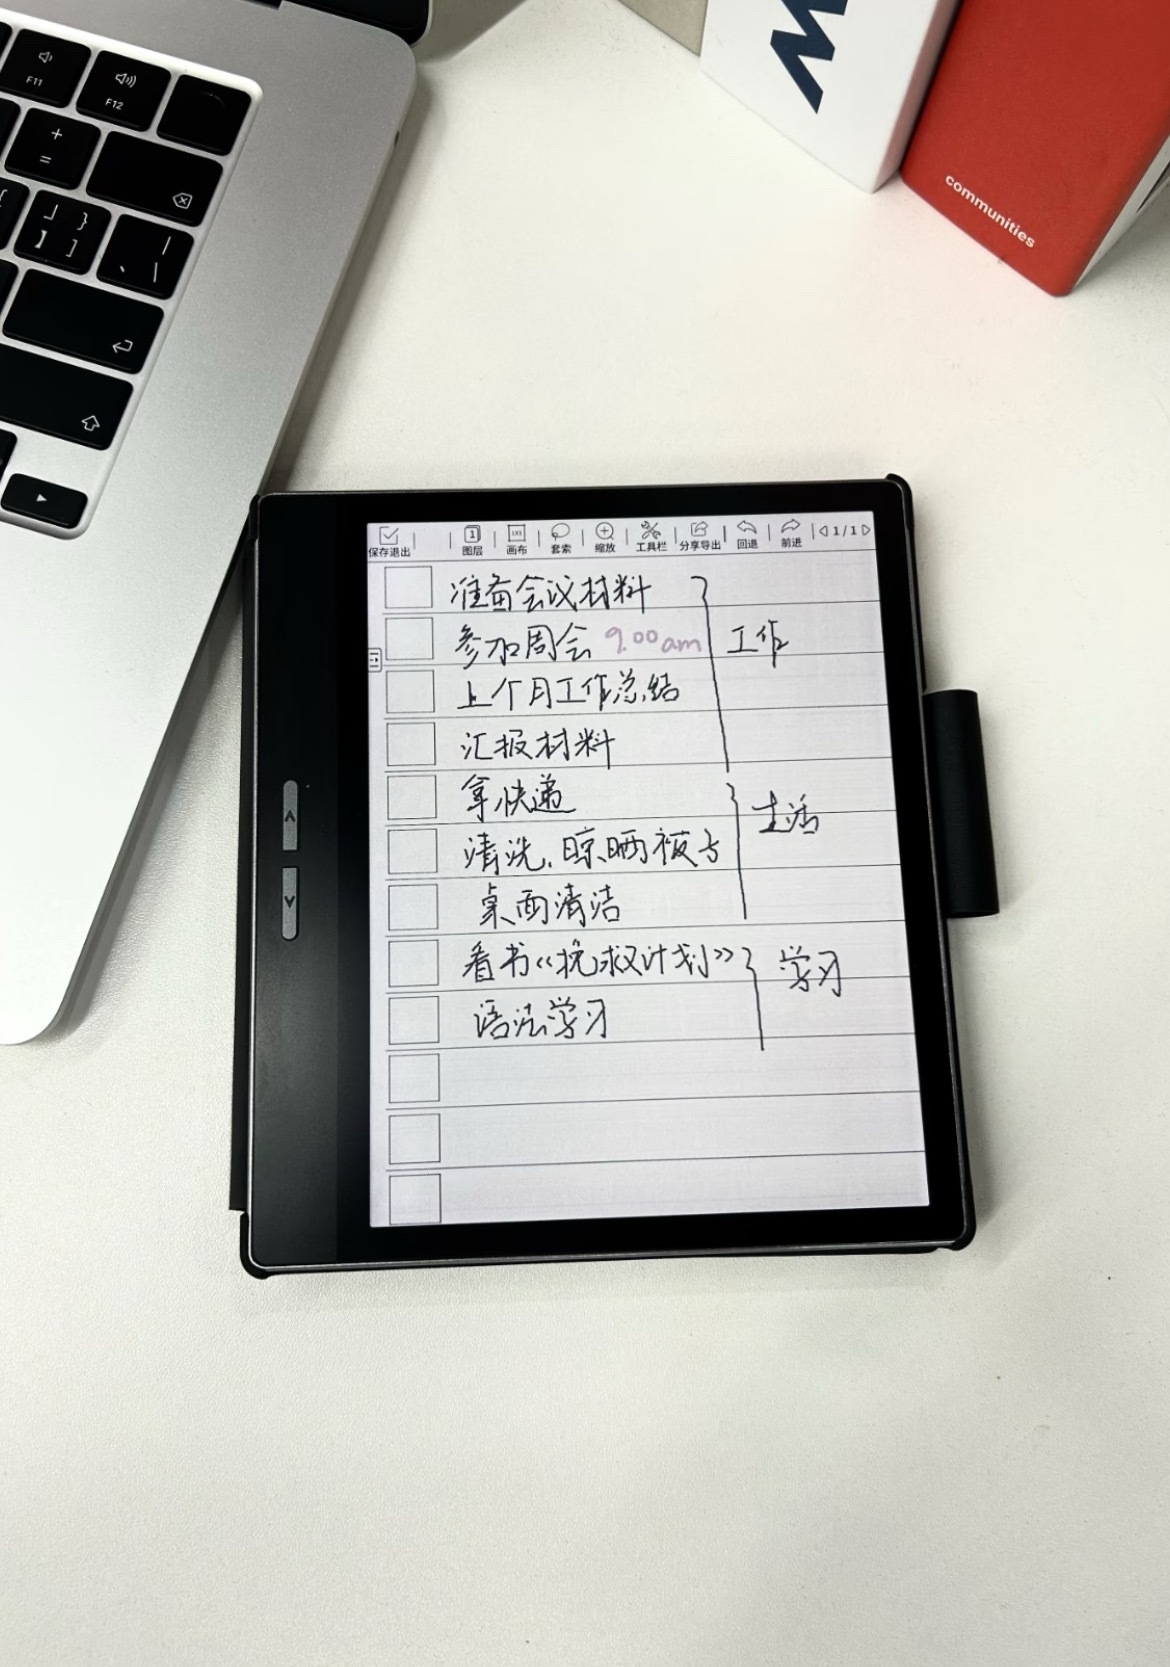 F11
F12
+
=
}
】 ]
|
、 \
W
communities
保存退出 图层 画布 套索 缩放 工具栏 分享导出 回退 前进 1/1
准备会议材料
参加周会 9.00am 工作
上个月工作总结
汇报材料
拿快递
生活
清洗、晾晒被子
桌面清洁
看书《挽救计划》 学习
语法学习